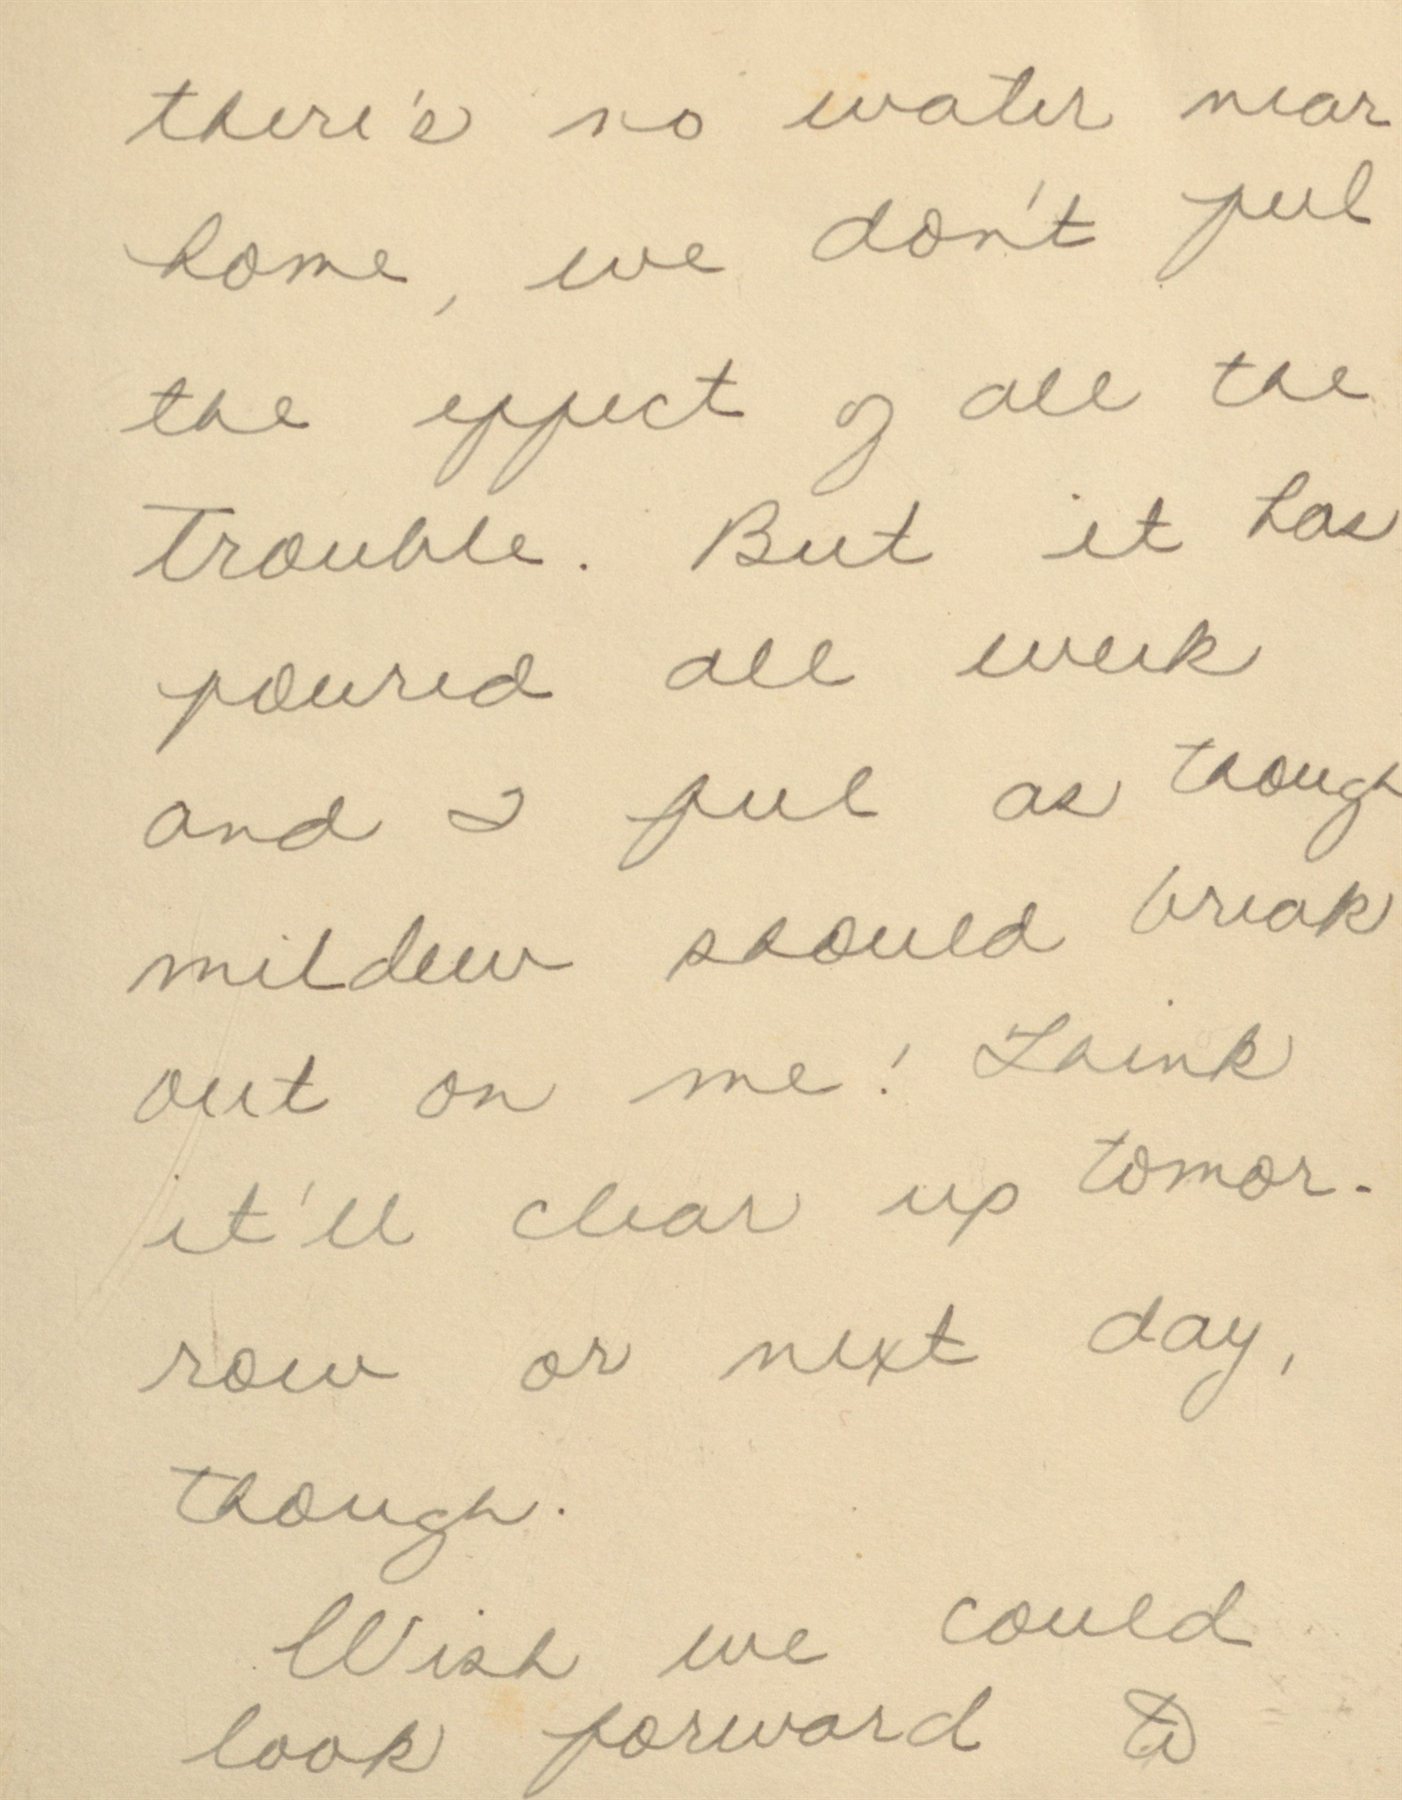 there's no water near
home, we don't feel
the effect of all the
trouble. But it has
poured all week
and I feel as though
mildew should break
out on me! Think
it'll clear up tomor-
row or next day,
though.
Wish we could
look forward to